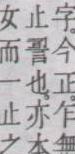 字。今正。乍無
止誓也。亦本
女而一止之